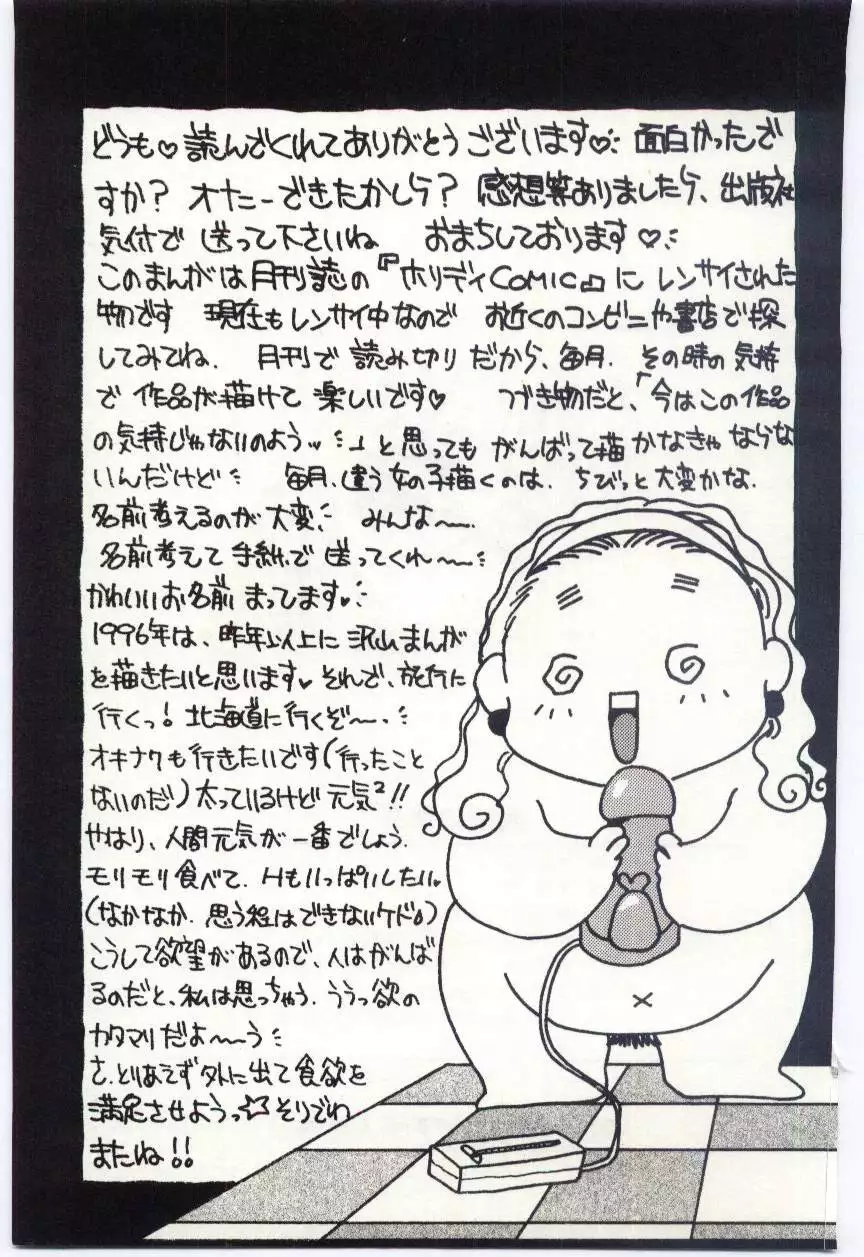 どうも♡読んでくれてありがとうございます♡ 面白かったで
すか？ オナニーできたかしら？ 感想等ありましたら、出版社
気付で 送って下さいね おまちしております♡
このまんがは月刊誌の『ホリディCOMIC』に レンサイされた
物です 現在もレンサイ中なので お近くのコンビニや書店で探
してみてね. 月刊で 読み切りだから、毎月. その時の気持
で 作品が描けて 楽しいです♡ つづき物だと、「今はこの作品
の気持じゃないのよう」と思っても がんばって描かなきゃならな
いんだけど 毎月、違う女の子描くのは. ちびっと大変かな.
名前考えるのが大変. みんな〜.
名前考えて 手紙で 送ってくれ〜
かわいいお名前 まってます
1996年は、昨年以上に沢山まんが
を描きたいと思います それで、旅行に
行くっ! 北海道に行くぞ〜.
オキナワも行きたいです(行ったこと
ないのだ)太っているけど 元気²!!
やはり、人間元気が 一番でしょう.
モリモリ食べて、Hもいっぱいしたい
(なかなか. 思う程はできないケド)
こうして欲望があるので、人はがんば
るのだと、私は思っちゃう. ううっ欲の
カタマリだよ〜〜う
さ、とりあえず外に出て食欲を
満足させようっ☆ そりでわ
またね!!